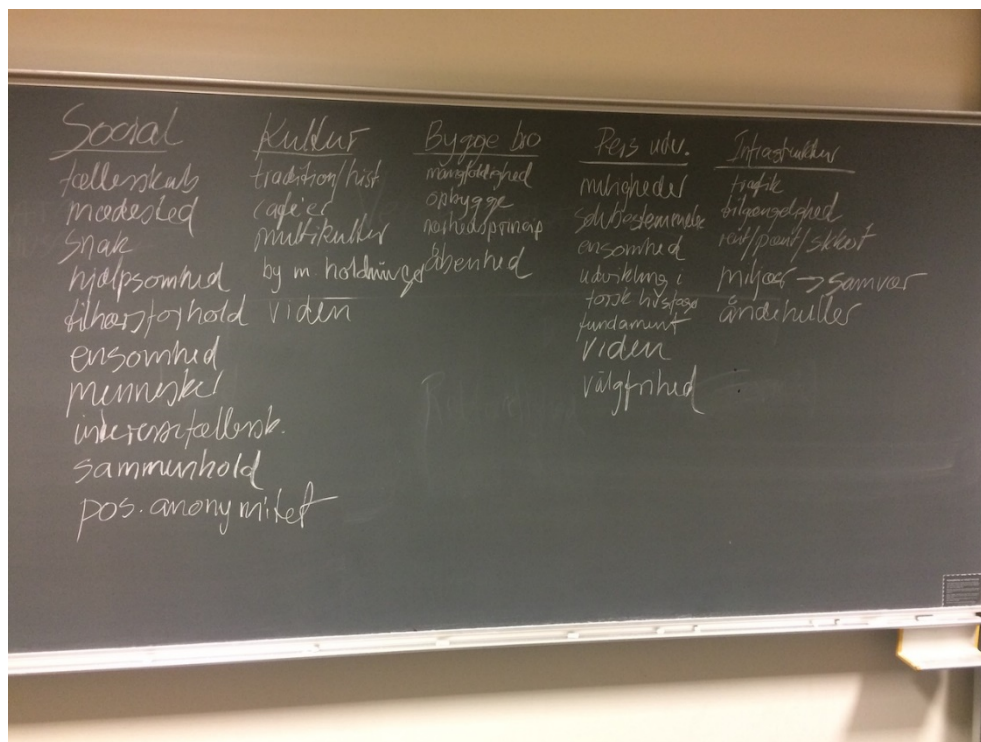 Social
fællesskab
mødested
snak
hjælpsomhed
tilhørsforhold
ensomhed
mennesker
interessefællessk.
sammenhold
pos. anonymitet
Kultur
tradition/hist
caféer
multikultur
by m. holdninger
viden
Bygge bro
mangfoldighed
opbygge
nærhedsprincip
åbenhed
Pers udv.
muligheder
selvbestemmelse
ensomhed
udvikling i
fundament
viden
valgfrihed
Infrastruktur
trafik
tilgængelighed
rent/pænt/sikkert
miljøer → samvær
åndehuller